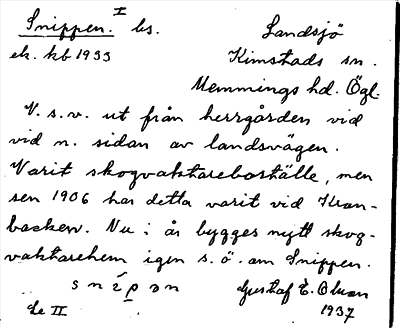 Snippen. I bs. Landsjö
ek. kb 1933 Kimstads sn.
Memmings hd. Ögl.
V. s. v. ut från herrgården vid
vid n. sidan av landsvägen.
Varit skogvaktareboställe, men
sen 1906 har detta varit vid Kvarn-
backen. Nu i år bygges nytt skog-
vaktarehem igen s. ö. om Snippen.
s n i p ə n Gustaf E. Olsson
Le II 1937